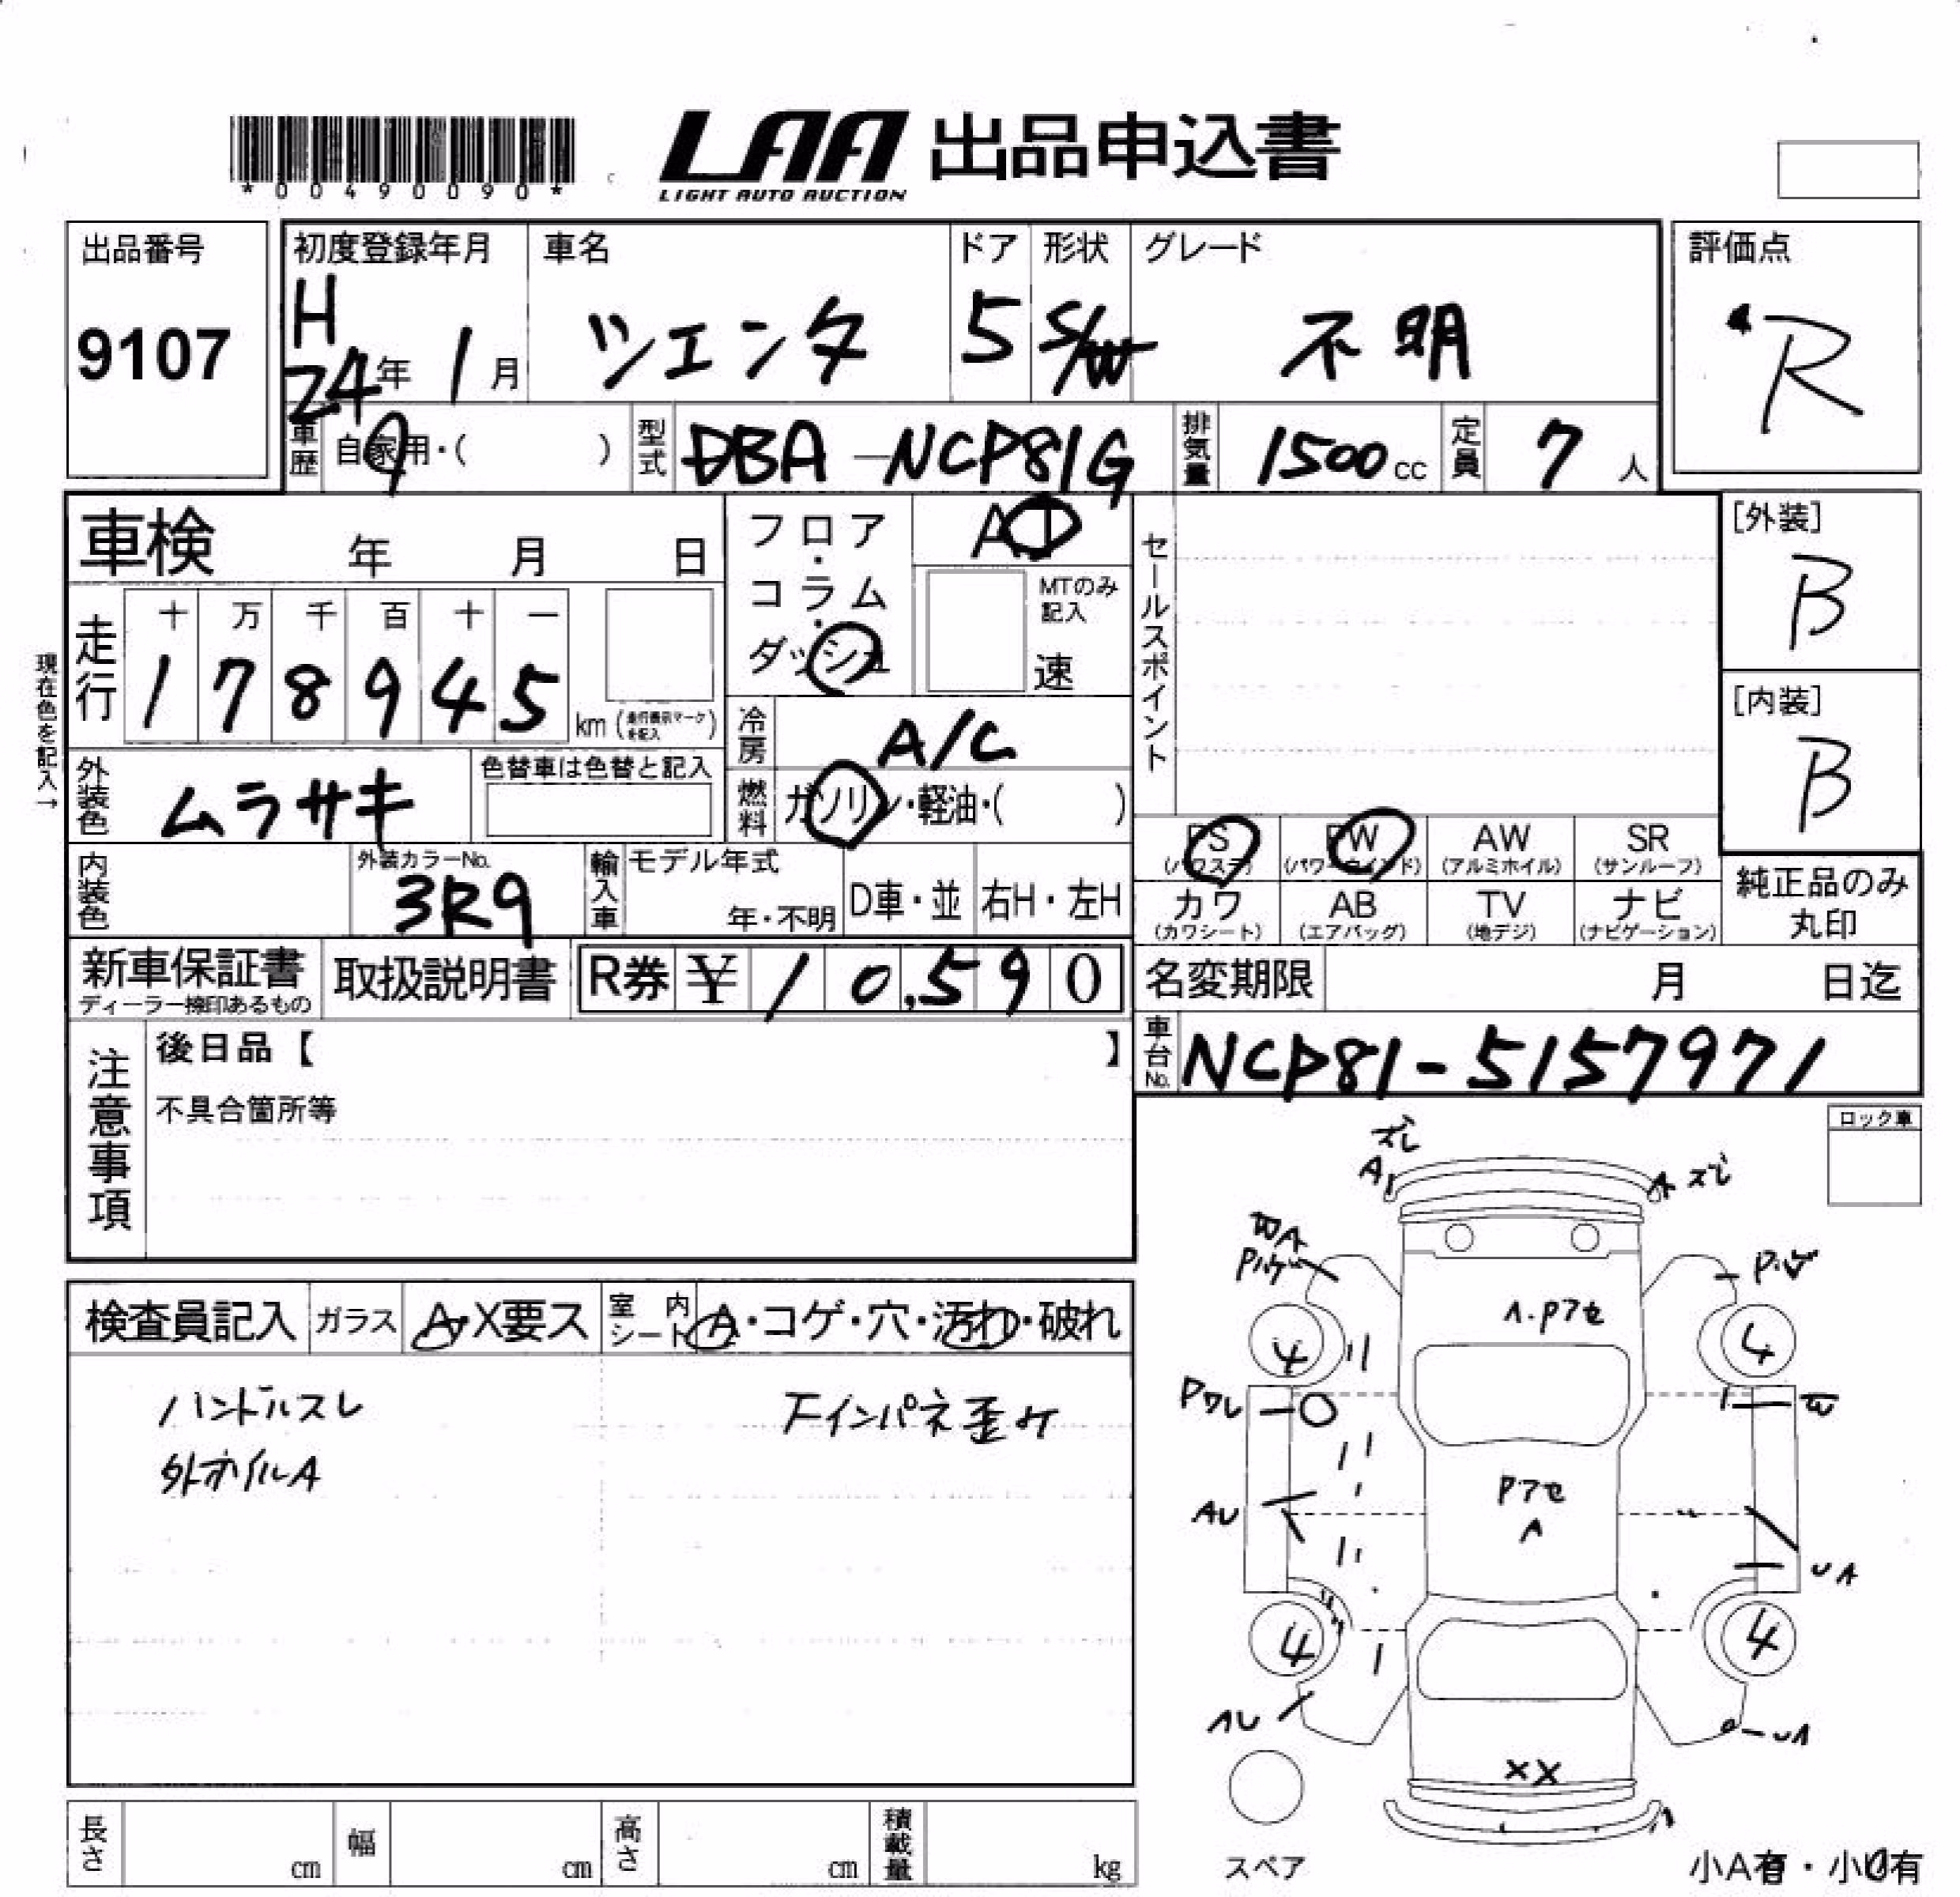 *00490090*
LAA 出品申込書
LIGHT AUTO AUCTION
出品番号
9107
初度登録年月
H
24年 1月
車名
シエンタ
ドア
5
形状
S/W
グレード
不明
評価点
R
車歴 自家用・( )
型式 DBA-NCP81G
排気量 1500 cc
定員 7 人
車検 年 月 日
走行
十 万 千 百 十 一
1 7 8 9 4 5
km (走行表示マークを記入)
現在色を記入→
フロア・コラム・ダッシュ
AT
MTのみ記入
速
冷房 A/C
燃料 ガソリン・軽油・( )
外装色 ムラサキ
色替車は色替と記入
内装色
外装カラーNo.
3R9
輸入車
モデル年式
年・不明
D車・並
右H・左H
セールスポイント
[外装]
B
[内装]
B
PS
(パワステ)
PW
(パワーウインド)
AW
(アルミホイル)
SR
(サンルーフ)
カワ
(カワシート)
AB
(エアバッグ)
TV
(地デジ)
ナビ
(ナビゲーション)
純正品のみ
丸印
新車保証書
ディーラー捺印あるもの
取扱説明書
R券 ¥ 10,590
名変期限 月 日迄
車台No. NCP81-5157971
注意事項
後日品【 】
不具合箇所等
ロック車
検査員記入
ガラス A・X要ス
室内シート A・コゲ・穴・汚れ・破れ
ハンドルスレ
外ホイルA
下インパネ歪み
ズレ
A
A ズレ
A・Pアセ
4
4
Pアセ
A
AU
UA
4
4
AU
UA
XX
スペア
小A有・小U有
長さ cm
幅 cm
高さ cm
積載量 kg